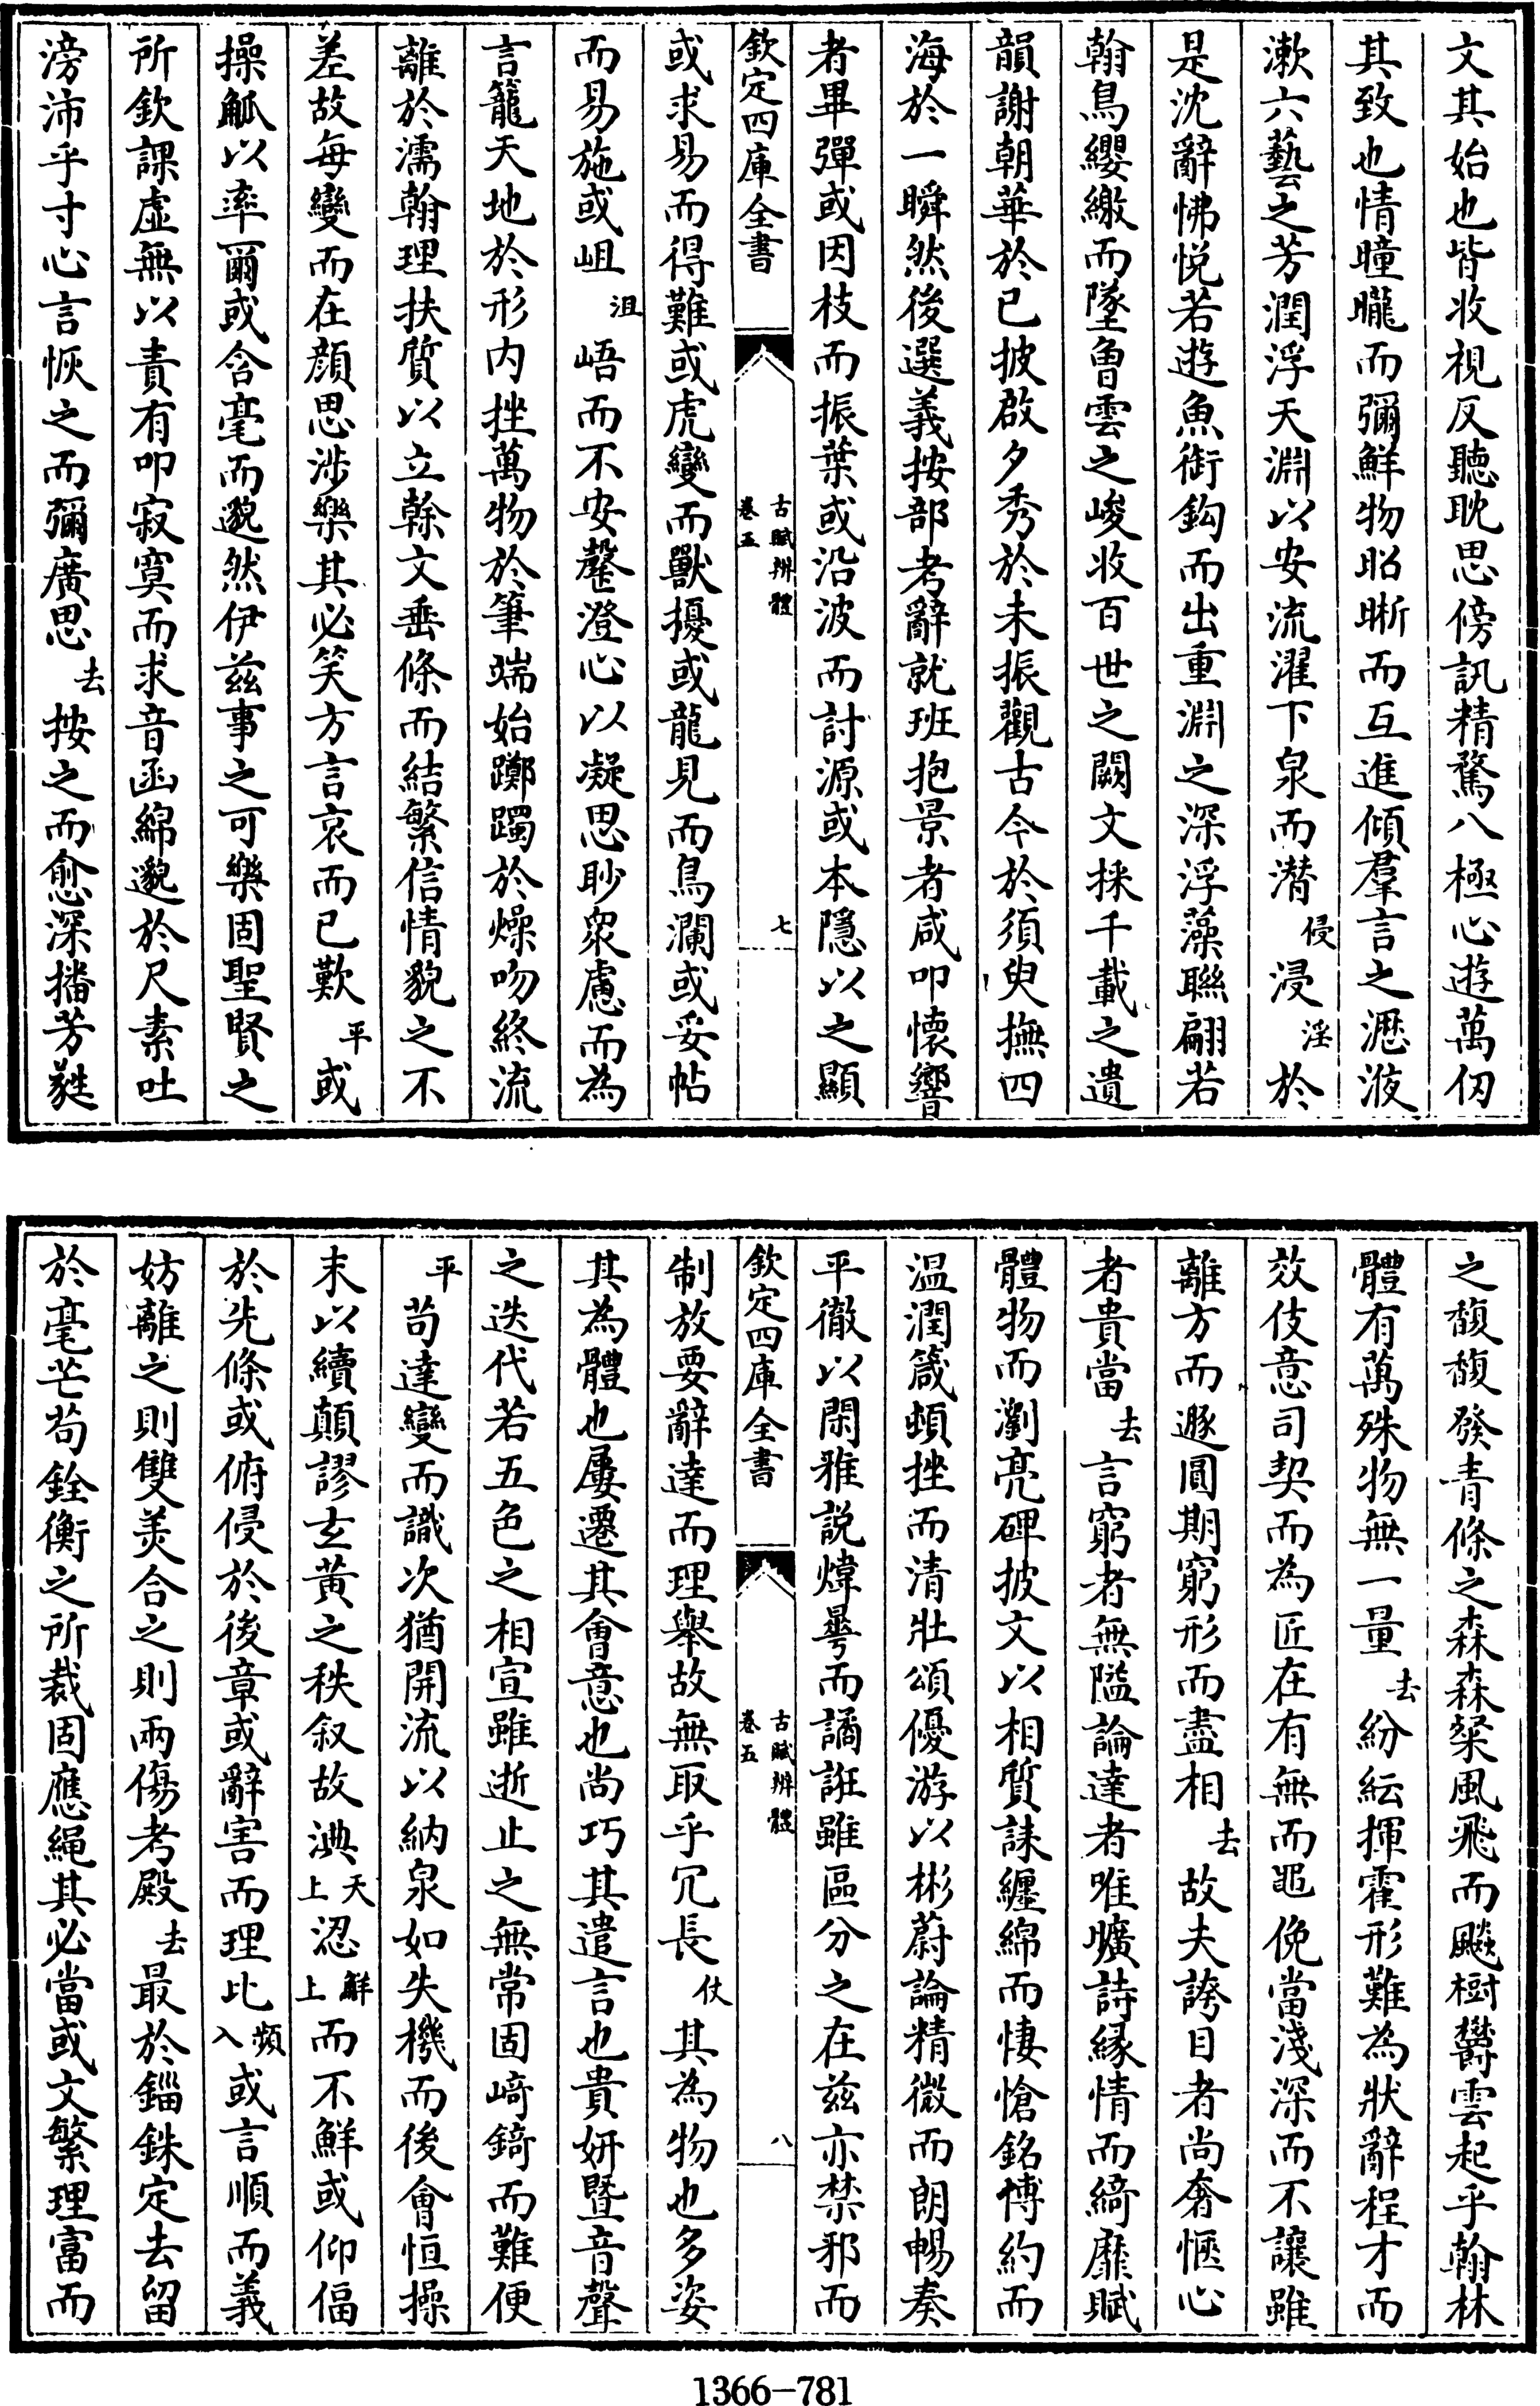 文其始也皆收視反聽耽思傍訊精騖八極心遊萬仞
其致也情曈曨而彌鮮物昭晰而互進傾羣言之瀝液
漱六藝之芳潤浮天淵以安流濯下泉而潜侵浸淫於
是沈辭怫悦若遊魚銜鈎而出重淵之深浮藻聯翩若
翰鳥纓繳而墜曾雲之峻收百世之闕文採千載之遺
韻謝朝華於已披啟夕秀於未振觀古今於須臾撫四
海於一瞬然後選義按部考辭就班抱景者咸叩懷響
者畢彈或因枝而振葉或沿波而討源或本隱以之顯
欽定四庫全書
古賦辨體
卷五
七
或求易而得難或虎變而獸擾或龍見而鳥瀾或妥帖
而易施或岨沮峿而不安罄澄心以凝思眇衆慮而為
言籠天地於形内挫萬物於筆端始躑躅於燥吻終流
離於濡翰理扶質以立榦文垂條而結繁信情貌之不
差故每變而在顔思涉樂其必笑方言哀而已歎平或
操觚以率爾或含毫而邈然伊兹事之可樂固聖賢之
所欽課虚無以責有叩寂寞而求音函綿邈於尺素吐
滂沛乎寸心言恢之而彌廣思去按之而愈深播芳蕤
之馥馥發青條之森森粲風飛而飈樹鬱雲起乎翰林
體有萬殊物無一量去紛紜揮霍形難為狀辭程才而
效伎意司契而為匠在有無而黽俛當淺深而不讓雖
離方而遯圓期窮形而盡相去故夫誇目者尚奢愜心
者貴當去言窮者無隘論達者唯曠詩縁情而綺靡賦
體物而瀏亮碑披文以相質誄纏綿而悽愴銘博約而
温潤箴頓挫而清壯頌優游以彬蔚論精微而朗暢奏
平徹以閑雅説煒曅而譎誑雖區分之在兹亦禁邪而
欽定四庫全書
古賦辨體
卷五
八
制放要辭達而理舉故無取乎冗長仗其為物也多姿
其為體也屢遷其會意也尚巧其遣言也貴妍暨音聲
之迭代若五色之相宣雖逝止之無常固﨑錡而難便
平茍達變而識次猶開流以納泉如失機而後會恒操
末以續顛謬玄黄之秩叙故淟天上涊鮮上而不鮮或仰偪
於先條或俯侵於後章或辭害而理比頻入或言順而義
妨離之則雙美合之則兩傷考殿去最於錙銖定去留
於毫芒茍銓衡之所裁固應繩其必當或文繁理富而
1366-781